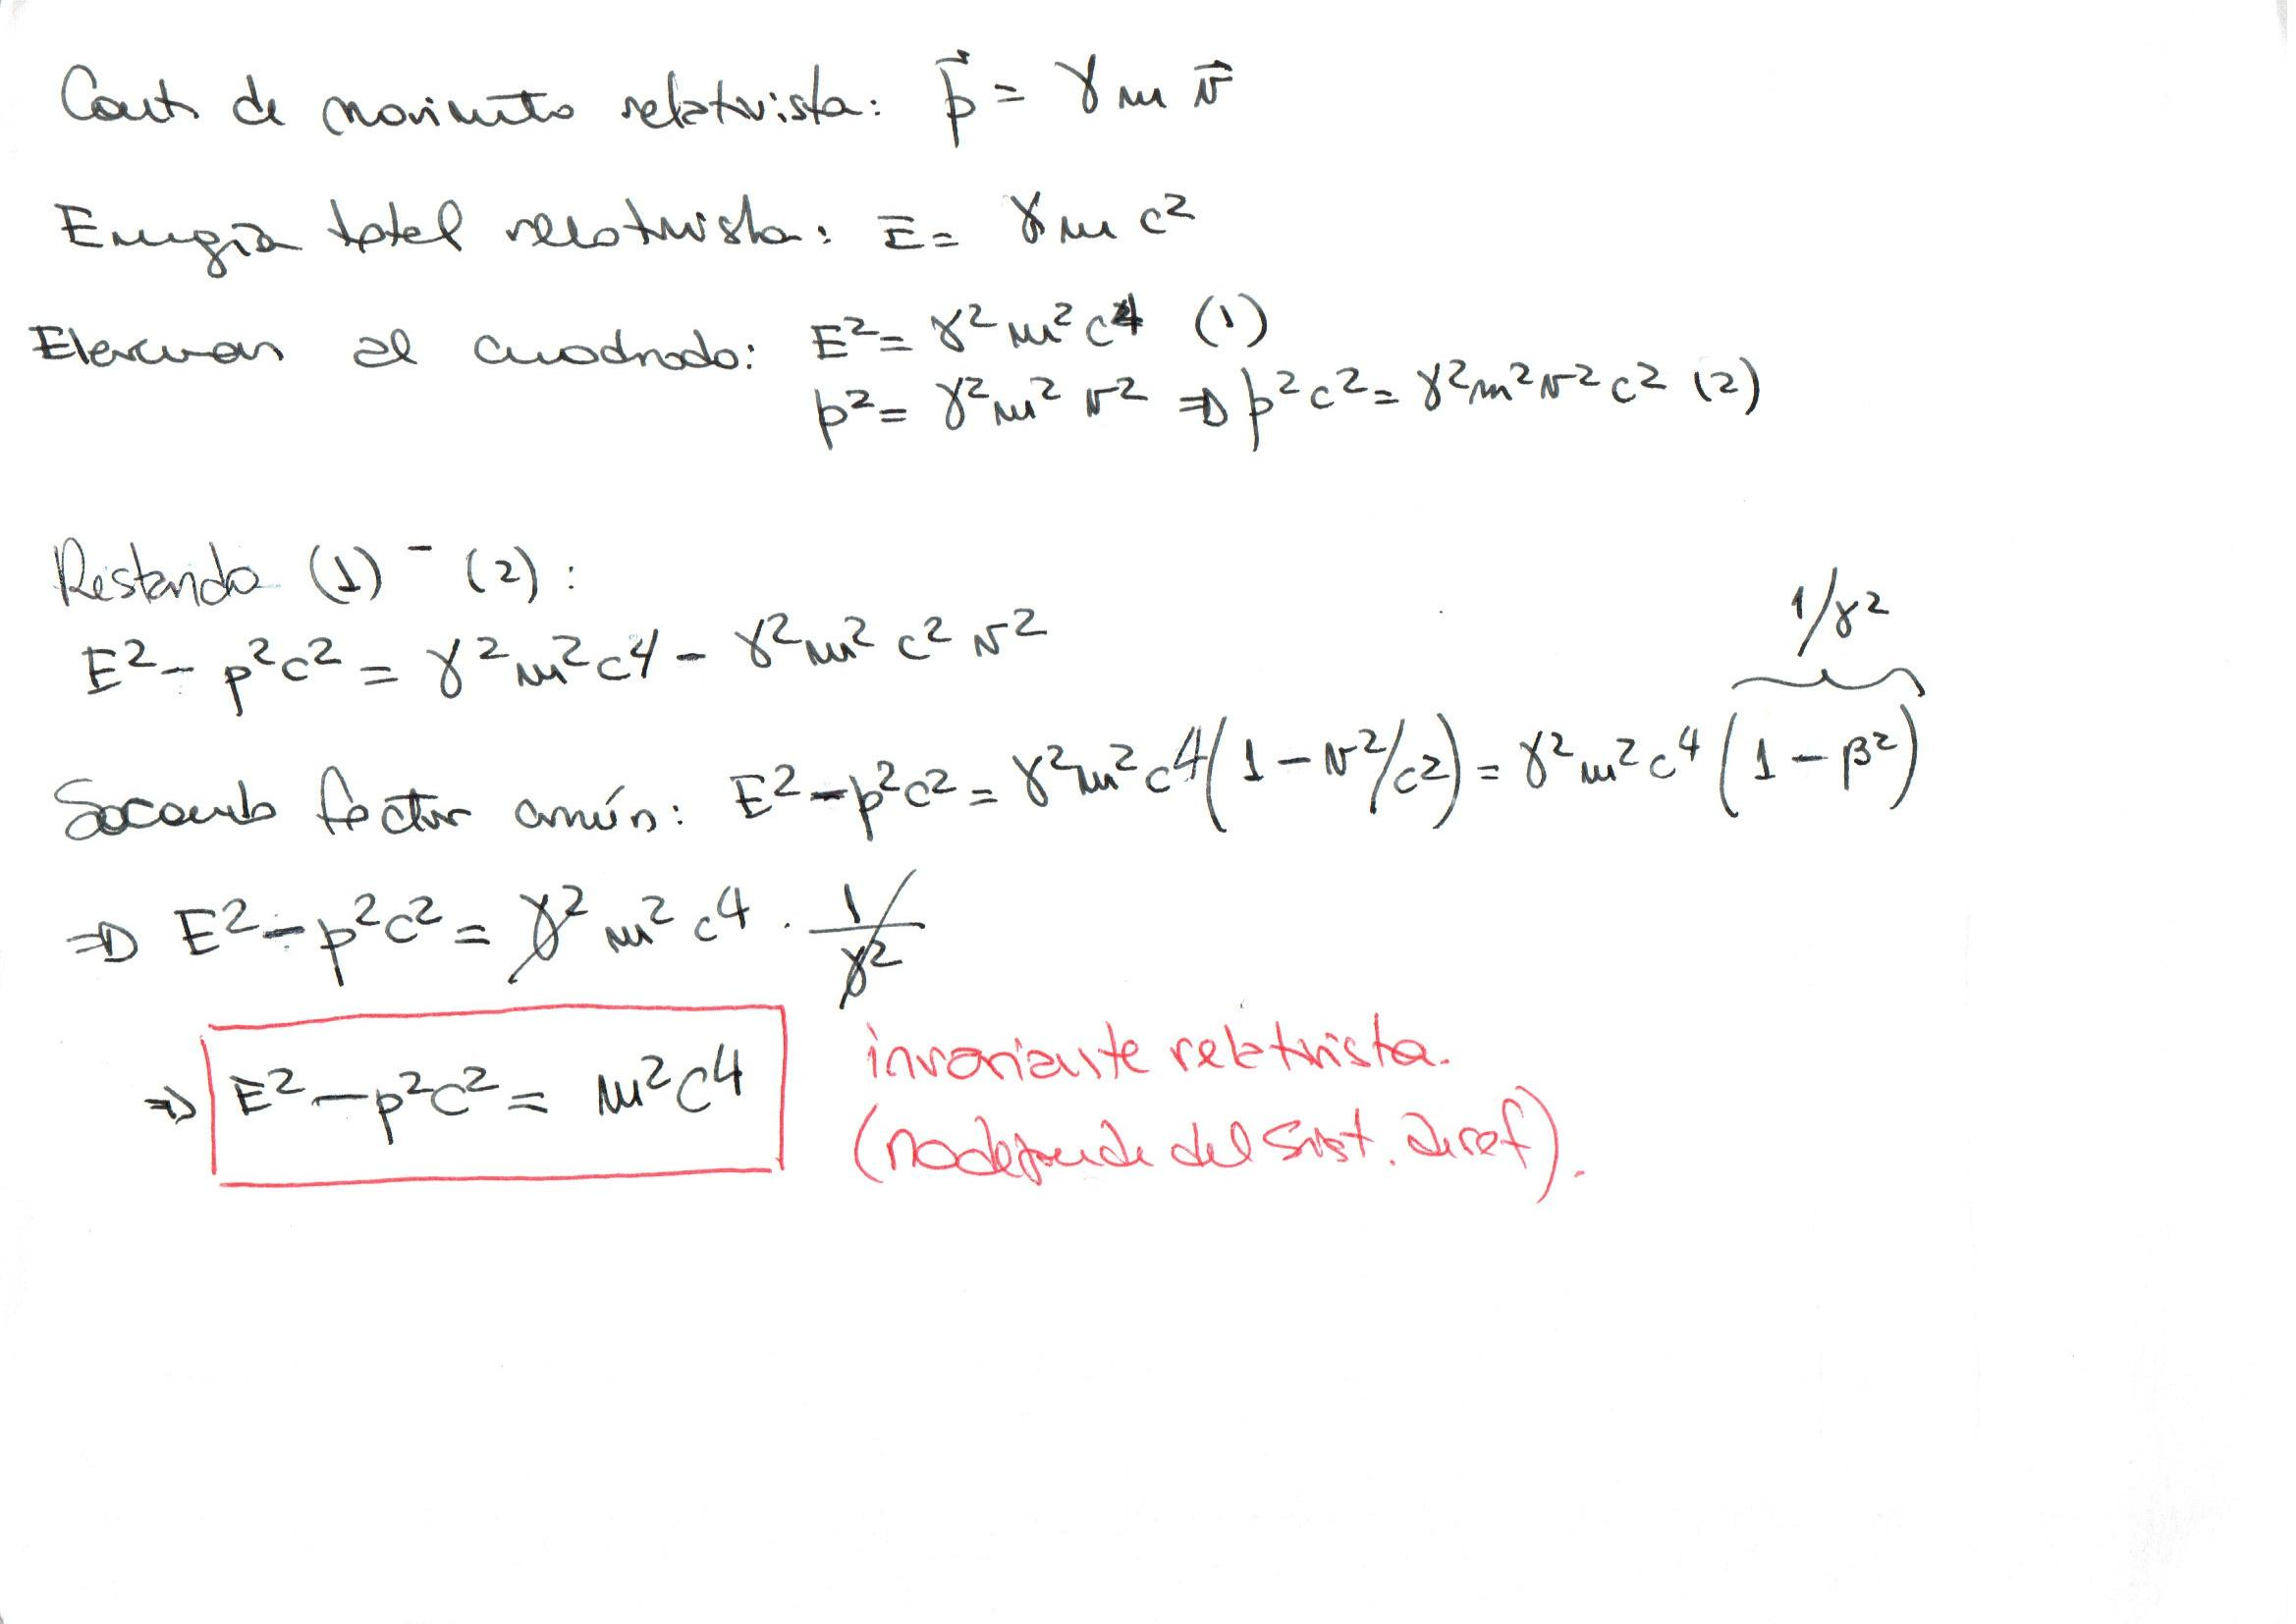 Cant de movimiento relativista: p⃗ = γ m v⃗
Energía total relativista: E = γ m c²
Elevamos al cuadrado: E² = γ² m² c⁴ (1)
p² = γ² m² v² ⇒ p² c² = γ² m² v² c² (2)
Restando (1) - (2):
E² - p²c² = γ² m² c⁴ - γ² m² c² v²
1/γ²
Sacando factor común: E² - p²c² = γ² m² c⁴ (1 - v²/c²) = γ² m² c⁴ (1 - β²)
⇒ E² - p²c² = γ² m² c⁴ · 1/γ²
⇒ E² - p²c² = m² c⁴
invariante relativista.
(no depende del sist. de ref).